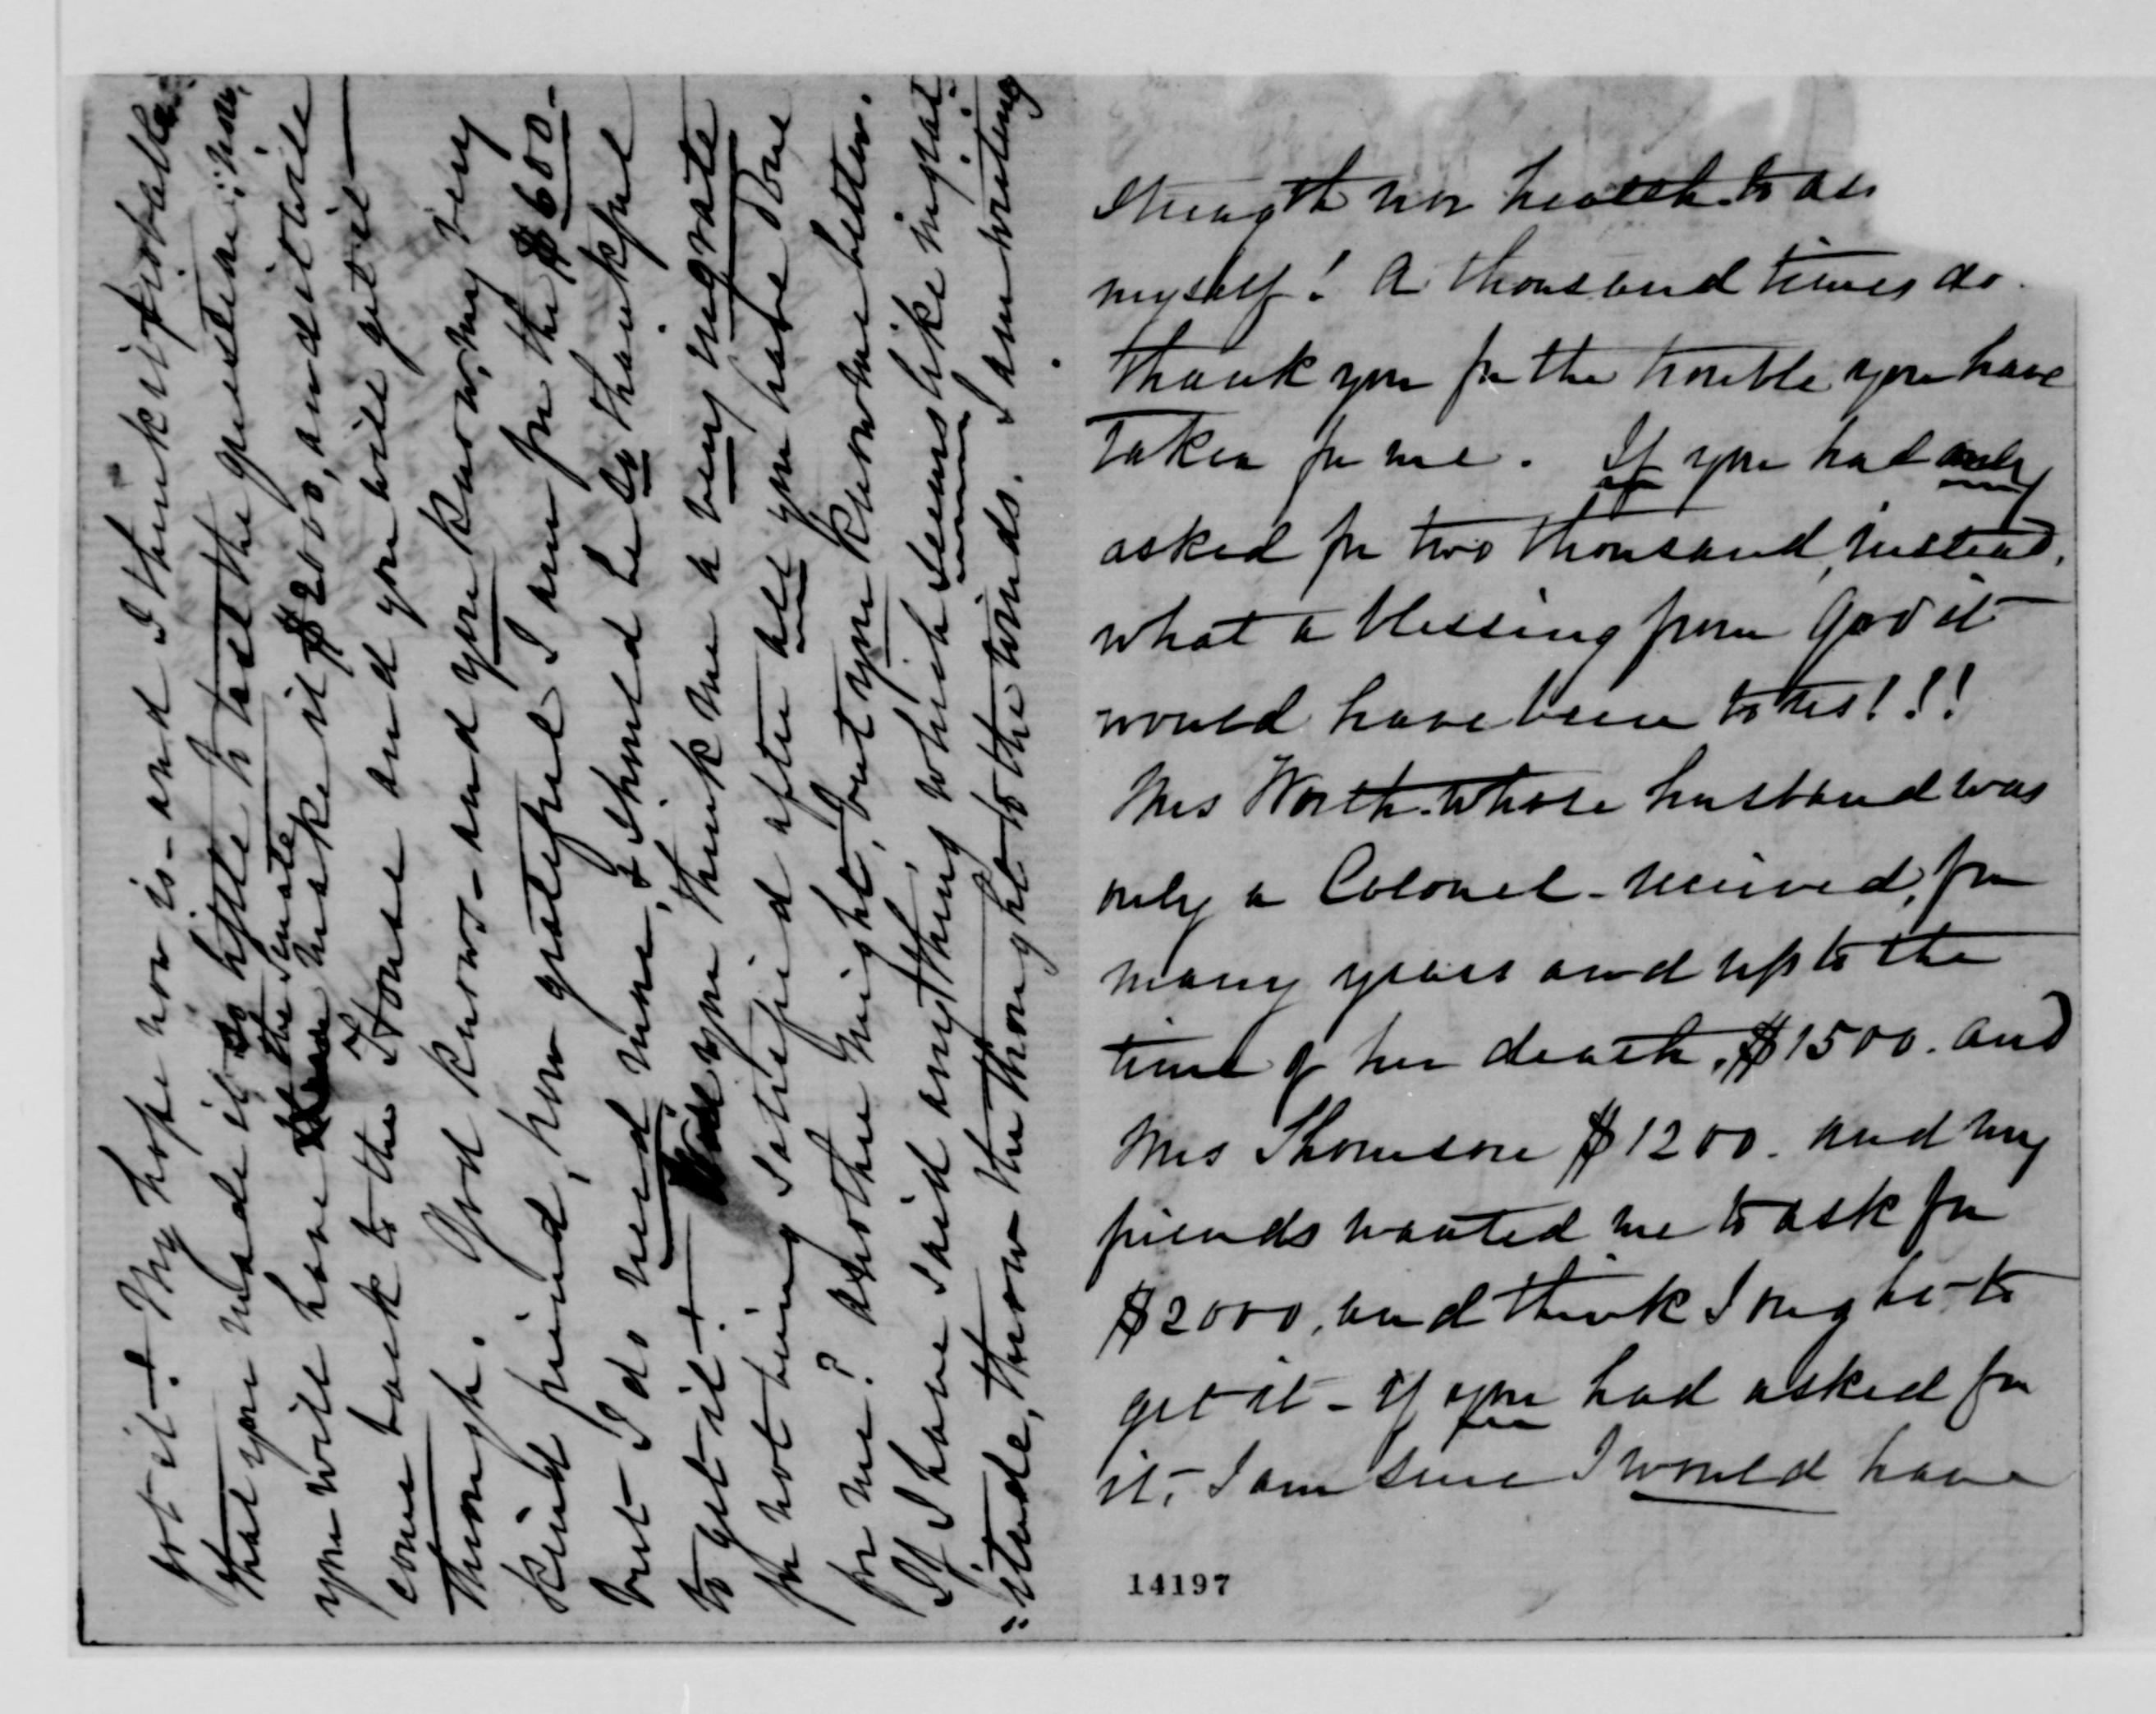 strength nor health to do
myself! A thousand times do
thank you for the trouble you have
taken for me. If you had only
asked for two thousand, instead,
what a blessing from God it
would have been to us!!!
Mrs Worth - whose husband was
only a Colonel - received, for
many years and up to the
time of her death, $1500. and
Mrs Thomson $1200. and my
friends wanted me to ask for
$2000, and think I ought to
get it - If you had asked for
it, I am sure I would have
14197
got it! My hope now is - and I think it probable
that you made it so little to test the question: now,
the Senate
you will have make it $2000, and it will
come back to the House and you will get it
through. God knows - and you know, my very
kind friend, how grateful I am for the $600 -
but I do need more, & should be so thankful
to get it! Will you think me a very ingrate
for not being satisfied after all you have done
for me? Another might, but you know me better.
If I have said anything which seems like ingrat:
:itude, throw the thought to the winds. I am writing